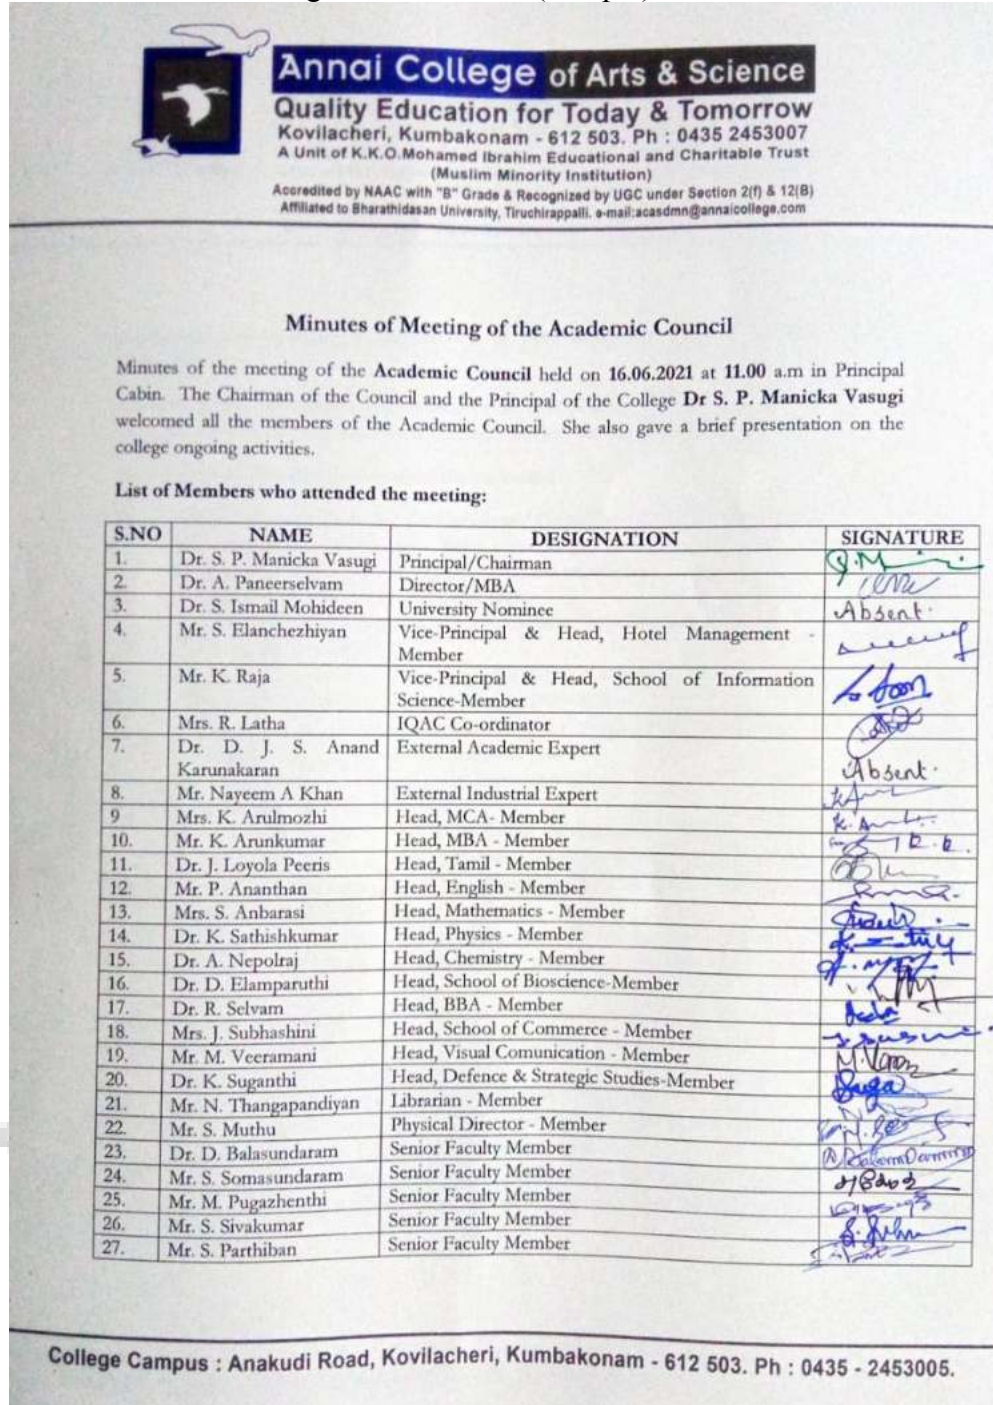 Annai College of Arts & Science
Quality Education for Today & Tomorrow
Kovilacheri, Kumbakonam - 612 503. Ph : 0435 2453007
A Unit of K.K.O.Mohamed Ibrahim Educational and Charitable Trust
(Muslim Minority Institution)
Accredited by NAAC with "B" Grade & Recognized by UGC under Section 2(f) & 12(B)
Affiliated to Bharathidasan University, Tiruchirappalli. e-mail:acasdmn@annaicollege.com
Minutes of Meeting of the Academic Council
Minutes of the meeting of the Academic Council held on 16.06.2021 at 11.00 a.m in Principal
Cabin. The Chairman of the Council and the Principal of the College Dr S. P. Manicka Vasugi
welcomed all the members of the Academic Council. She also gave a brief presentation on the
college ongoing activities.
List of Members who attended the meeting:
S.NO NAME DESIGNATION SIGNATURE
1. Dr. S. P. Manicka Vasugi Principal/Chairman
2. Dr. A. Paneerselvam Director/MBA
3. Dr. S. Ismail Mohideen University Nominee Absent.
4. Mr. S. Elanchezhiyan Vice-Principal & Head, Hotel Management -
Member
5. Mr. K. Raja Vice-Principal & Head, School of Information
Science-Member
6. Mrs. R. Latha IQAC Co-ordinator
7. Dr. D. J. S. Anand External Academic Expert
Karunakaran Absent.
8. Mr. Nayeem A Khan External Industrial Expert
9 Mrs. K. Arulmozhi Head, MCA- Member
10. Mr. K. Arunkumar Head, MBA - Member
11. Dr. J. Loyola Peeris Head, Tamil - Member
12. Mr. P. Ananthan Head, English - Member
13. Mrs. S. Anbarasi Head, Mathematics - Member
14. Dr. K. Sathishkumar Head, Physics - Member
15. Dr. A. Nepolraj Head, Chemistry - Member
16. Dr. D. Elamparuthi Head, School of Bioscience-Member
17. Dr. R. Selvam Head, BBA - Member
18. Mrs. J. Subhashini Head, School of Commerce - Member
19. Mr. M. Veeramani Head, Visual Comunication - Member
20. Dr. K. Suganthi Head, Defence & Strategic Studies-Member
21. Mr. N. Thangapandiyan Librarian - Member
22. Mr. S. Muthu Physical Director - Member
23. Dr. D. Balasundaram Senior Faculty Member
24. Mr. S. Somasundaram Senior Faculty Member
25. Mr. M. Pugazhenthi Senior Faculty Member
26. Mr. S. Sivakumar Senior Faculty Member
27. Mr. S. Parthiban Senior Faculty Member
College Campus : Anakudi Road, Kovilacheri, Kumbakonam - 612 503. Ph : 0435 - 2453005.